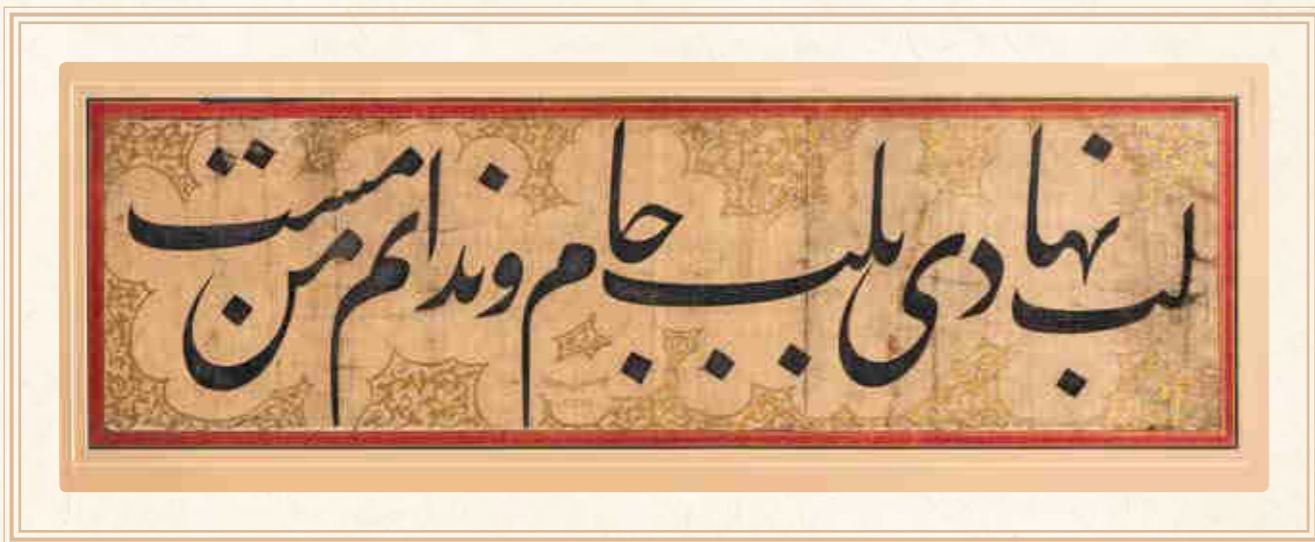 لب نهادی بلب جام و ندانم من مست